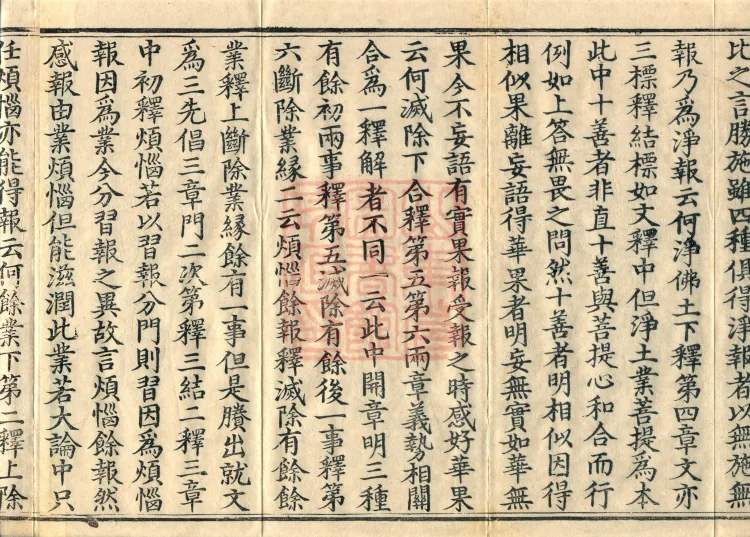 比之言勝施雖四種俱得淨報者以無施無
報乃爲淨報云何淨佛土下釋第四章文亦
三標釋結標如文釋中但淨土業菩提爲本
此中十善者非直十善與菩提心和合而行
例如上答無畏之問然十善者明相似因得
相似果離妄語得華果者明妄無實如華無
果今不妄語有實果報受報之時感好華果
云何滅除下合釋第五第六兩章義勢相關
合爲一釋解者不同一云此中開章明三種
有餘初兩事釋第五滅除有餘後一事釋第
六斷除業緣二云煩惱餘報釋滅除有餘餘
業釋上斷除業緣餘有一事但是賸出就文
爲三先倡三章門二次第釋三結二釋三章
中初釋煩惱若以習報分門則習因爲煩惱
報因爲業今分習報之異故言煩惱餘報然
感報由業煩惱但能滋潤此業若大論中只
任煩惱亦能得報云何餘業下第二釋上除